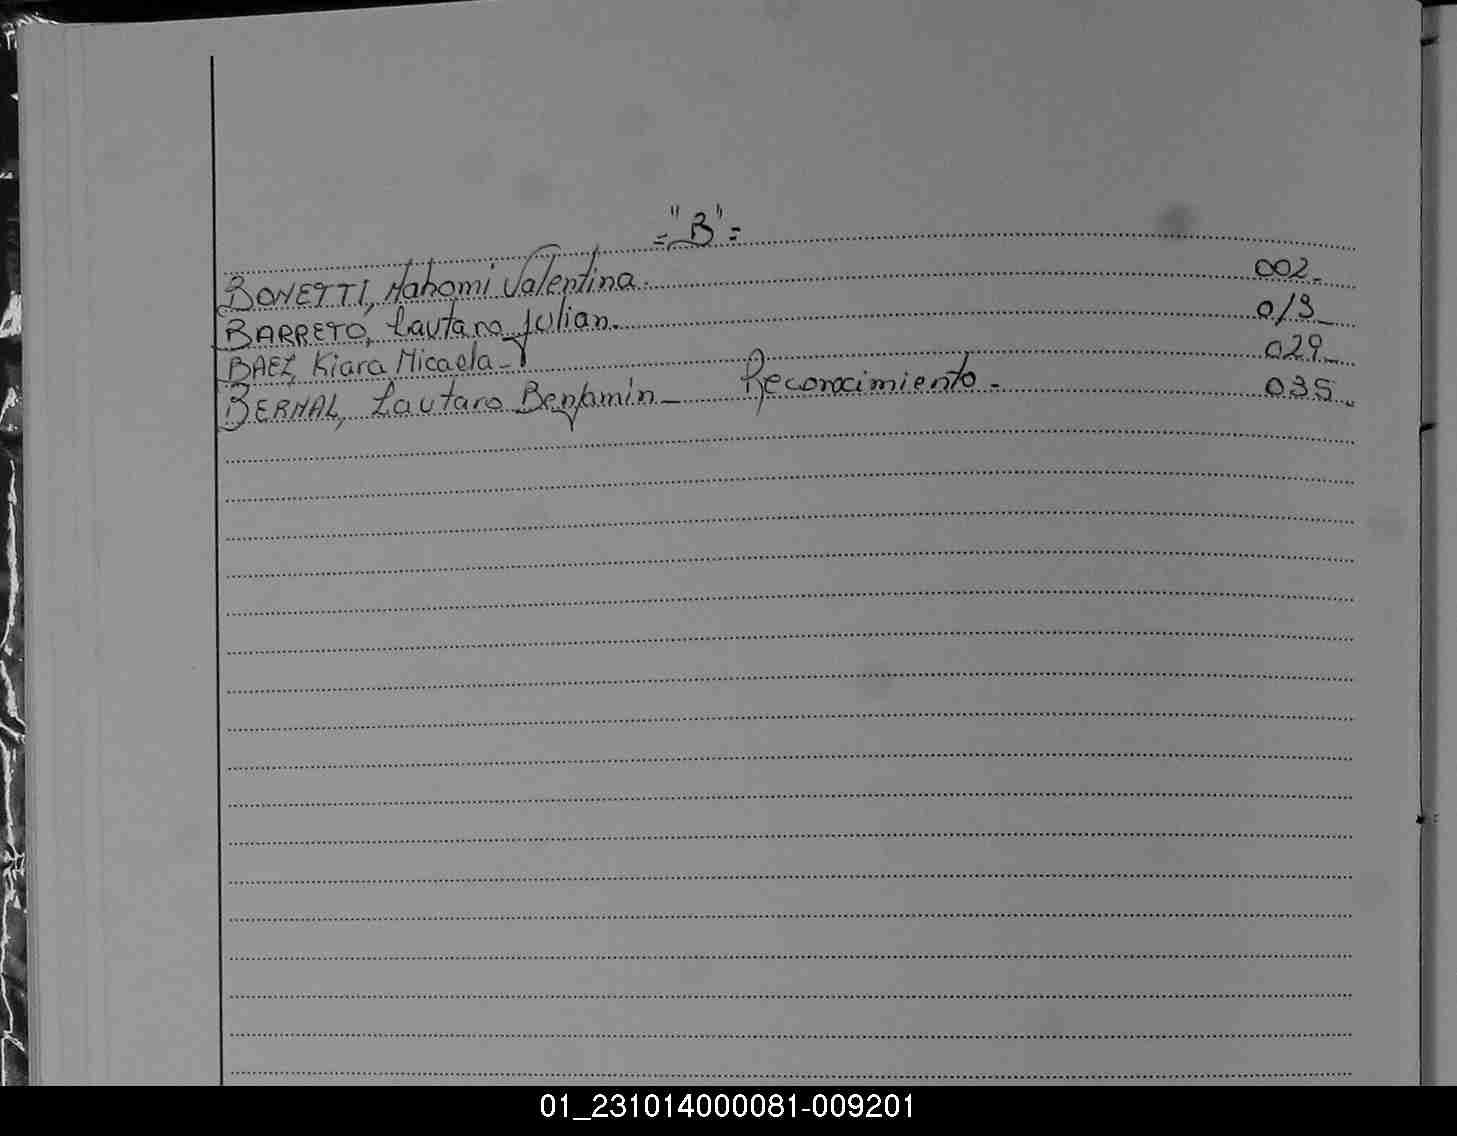 ="B"=
BONETTI, Nahomi Valentina. 002.
BARRETO, Lautaro Julian. 013
BAEZ, Kiara Micaela - 029
BERNAL, Lautaro Benjamin - Reconocimiento - 035
01_231014000081-009201